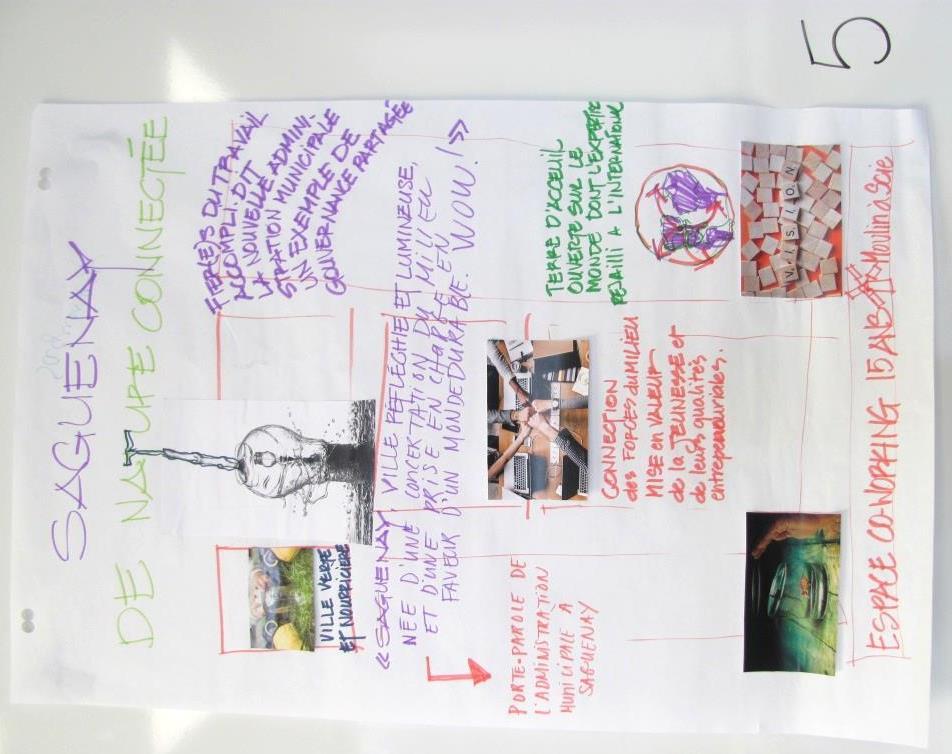 5
SAGUENAY
DE NATURE CONNECTÉE
FIER(E)S DU TRAVAIL
ACCOMPLI, DIT
LA NOUVELLE ADMINI-
STRATION MUNICIPALE
UN EXEMPLE DE
GOUVERNANCE PARTAGÉE
VILLE VERTE
ET NOURRICIÈRE
« SAGUENAY, VILLE RÉFLÉCHIE ET LUMINEUSE,
NÉE D'UNE CONCERTATION DU MILIEU
ET D'UNE PRISE EN CHARGE EN
FAVEUR D'UN MONDE DURABLE. WOW! »
PORTE-PAROLE DE
L'ADMINISTRATION
MUNICIPALE À
SAGUENAY
CONNECTION
des FORCES du MILIEU
MISE en VALEUR
de la JEUNESSE et
de leurs qualités
entrepreneuriales.
TERRE D'ACCEUIL
OUVERTE SUR LE
MONDE DONT L'EXPERTISE
À L'INTERNATIONAL
VISION
ESPACE CO-WORKING 15 ANS Moulin à Scie